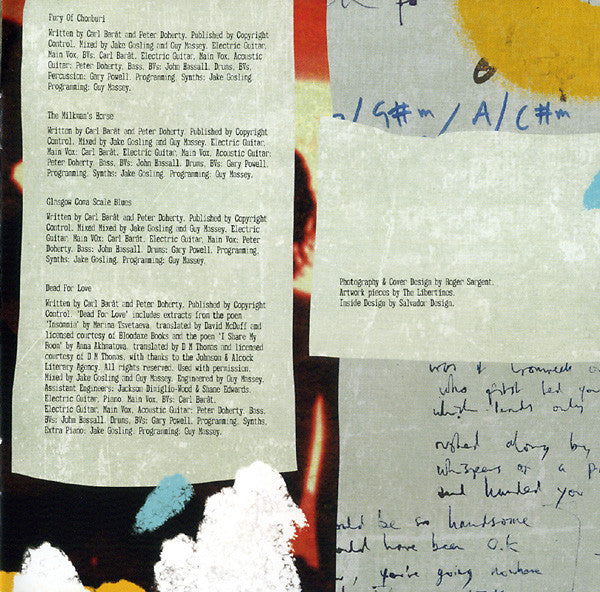 Fury Of Chonburi
Written by Carl Barât and Peter Doherty. Published by Copyright
Control. Mixed by Jake Gosling and Guy Massey. Electric Guitar,
Main Vox, BVs: Carl Barât, Electric Guitar, Main Vox, Acoustic
Guitar: Peter Doherty, Bass, BVs: John Hassall, Drums, BVs,
Percussion: Gary Powell. Programming, Synths: Jake Gosling
Programming: Guy Massey.
The Milkman's Horse
Written by Carl Barât and Peter Doherty. Published by Copyright
Control. Mixed by Jake Gosling and Guy Massey. Electric Guitar,
Main Vox: Carl Barât. Electric Guitar, Main Vox, Acoustic Guitar:
Peter Doherty, Bass, BVs: John Hassall. Drums, BVs: Gary Powell.
Programming, Synths: Jake Gosling. Programming: Guy Massey.
Glasgow Coma Scale Blues
Written by Carl Barât and Peter Doherty. Published by Copyright
Control. Mixed Mixed by Jake Gosling and Guy Massey. Electric
Guitar, Main VOx: Carl Barât. Electric Guitar, Main Vox: Peter
Doherty. Bass: John Hassall. Drums: Gary Powell. Programming,
Synths: Jake Gosling. Programming: Guy Massey.
Dead For Love
Written by Carl Barât and Peter Doherty. Published by Copyright
Control. 'Dead For Love' includes extracts from the poem
'Insomnia' by Marina Tsvetaeva, translated by David McDuff and
licensed courtesy of Bloodaxe Books and the poem 'I Share My
Room' by Anna Akhmatova, translated by D M Thomas and licensed
courtesy of D M Thomas, with thanks to the Johnson & Alcock
Literary Agency. All rights reserved. Used with permission.
Mixed by Jake Gosling and Guy Massey. Engineered by Guy Massey.
Assistant Engineers: Jackson Diniglio-Wood & Shane Edwards.
Electric Guitar, Piano, Main Vox, BVs: Carl Barât.
Electric Guitar, Main Vox, Acoustic Guitar: Peter Doherty. Bass,
BVs: John Hassall. Drums, BVs: Gary Powell. Programming, Synths,
Extra Piano: Jake Gosling. Programming: Guy Massey.
/G#m/A/C#m
Photography & Cover Design by Roger Sargent.
Artwork pieces by The Libertines.
Inside Design by Salvador Design.
who first led you
which lands only
rushed along by
whispers of a
and handed you
be so handsome
have been O.K
you're going nowhere